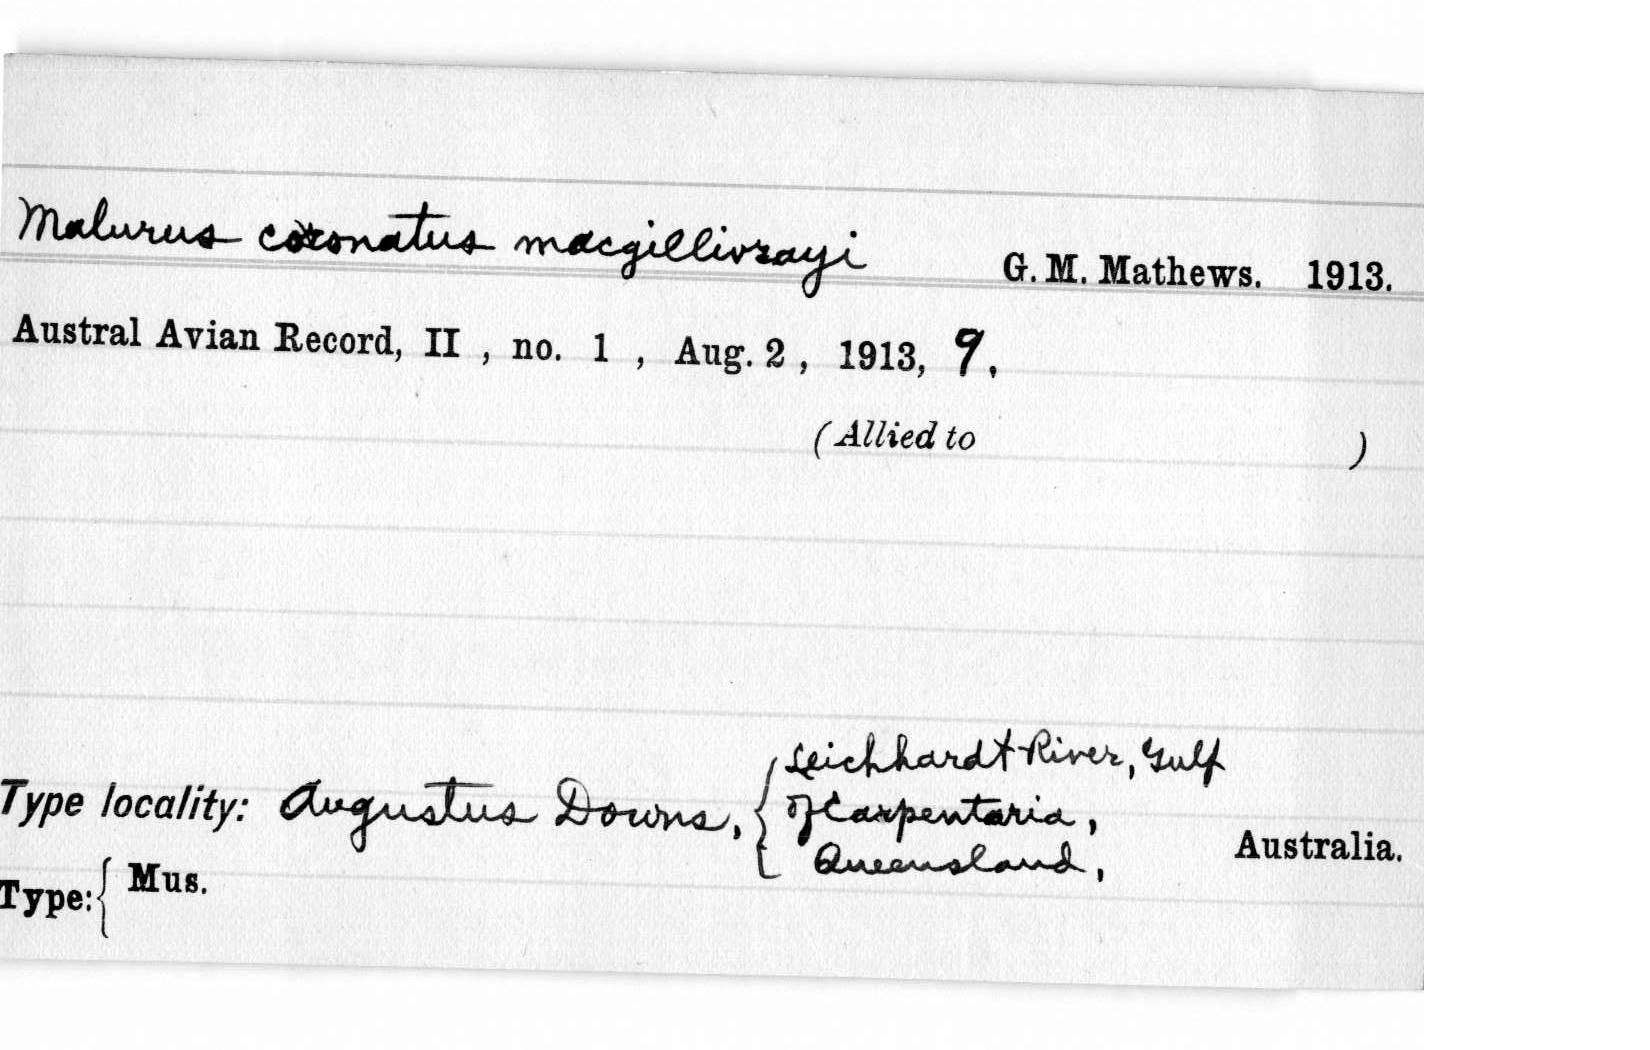 Malurus coronatus macgillivrayi G. M. Mathews. 1913.
Austral Avian Record, II , no. 1 , Aug. 2 , 1913, 9.
(Allied to )
Leichhardt River, Gulf
Type locality: Augustus Downs, of Carpentaria,
Queensland, Australia.
Type: Mus.